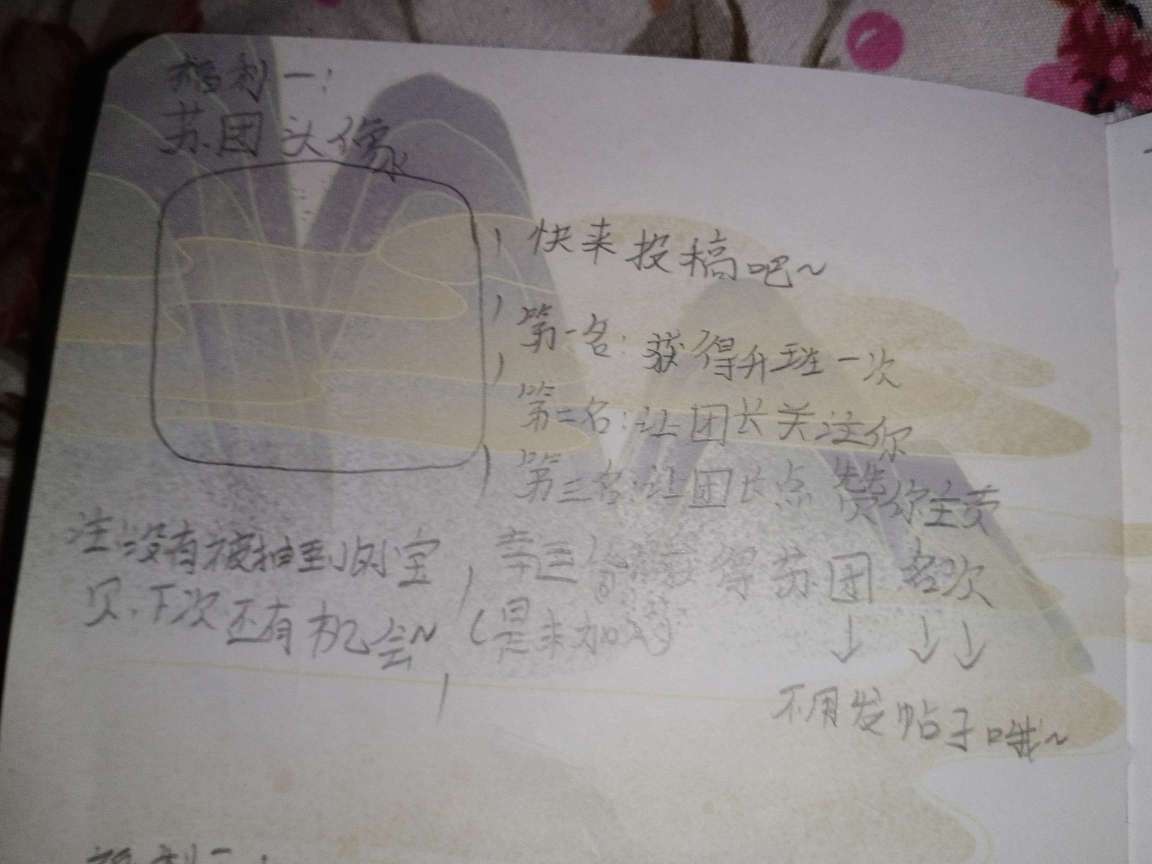 福利一:
苏团头像
快来投稿吧~
第一名:获得升班一次
第二名:让团长关注你
第三名:让团长点赞你主页
注:没有被抽到的宝
贝,下次还有机会~
获得苏团名次
(是未加入)
↓ ↓ ↓
不用发帖子哦~
福利二: